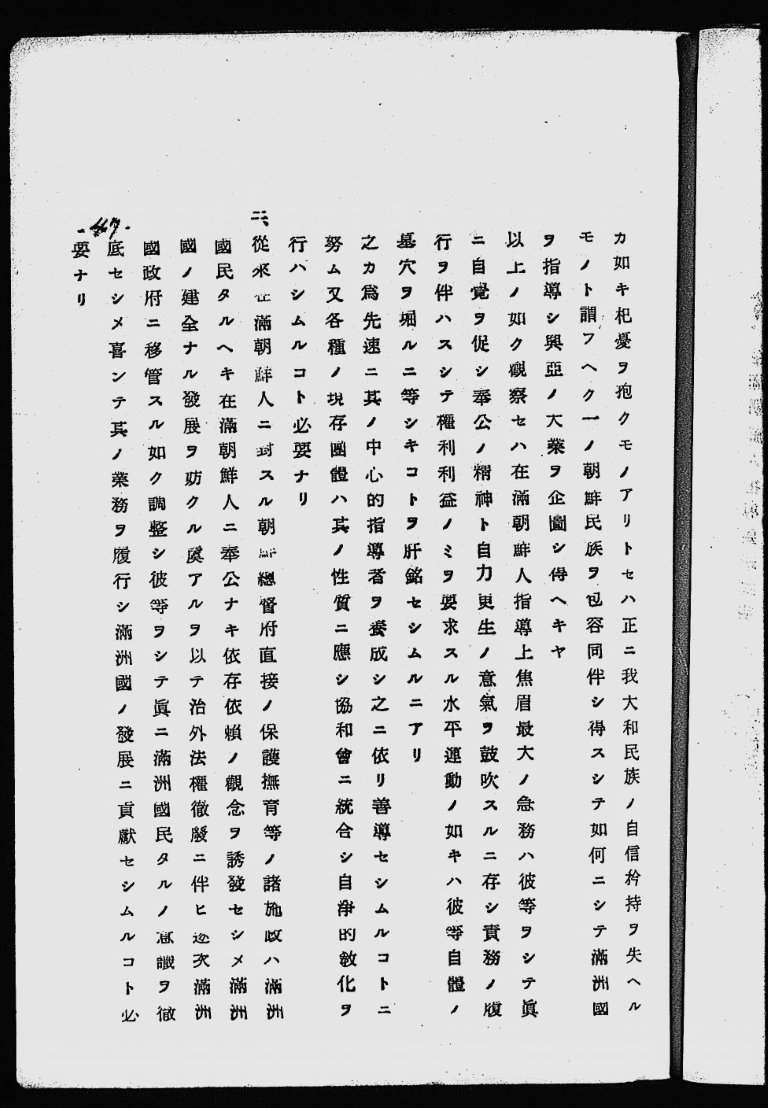 カ如キ杞憂ヲ抱クモノアリトセハ正ニ我大和民族ノ自信矜持ヲ失ヘル
モノト謂フヘク一ノ朝鮮民族ヲ包容同伴シ得スシテ如何ニシテ滿洲國
ヲ指導シ興亞ノ大業ヲ企圖シ得ヘキヤ
以上ノ如ク觀察セハ在滿朝鮮人指導上焦眉最大ノ急務ハ彼等ヲシテ眞
ニ自覺ヲ促シ奉公ノ精神ト自力更生ノ意氣ヲ鼓吹スルニ存シ責務ノ履
行ヲ伴ハスシテ權利利益ノミヲ要求スル水平運動ノ如キハ彼等自體ノ
墓穴ヲ堀ルニ等シキコトヲ肝銘セシムルニアリ
之カ爲先速ニ其ノ中心的指導者ヲ養成シ之ニ依リ善導セシムルコトニ
努ム又各種ノ現存團體ハ其ノ性質ニ應シ協和會ニ統合シ自淨的敎化ヲ
行ハシムルコト必要ナリ
二、從來在滿朝鮮人ニ對スル朝鮮總督府直接ノ保護撫育等ノ諸施政ハ滿洲
國民タルヘキ在滿朝鮮人ニ奉公ナキ依存依賴ノ觀念ヲ誘發セシメ滿洲
國ノ建全ナル發展ヲ妨クル虞アルヲ以テ治外法權撤廢ニ伴ヒ逐次滿洲
國政府ニ移管スル如ク調整シ彼等ヲシテ眞ニ滿洲國民タルノ意識ヲ徹
底セシメ喜ンテ其ノ業務ヲ履行シ滿洲國ノ發展ニ貢獻セシムルコト必
要ナリ